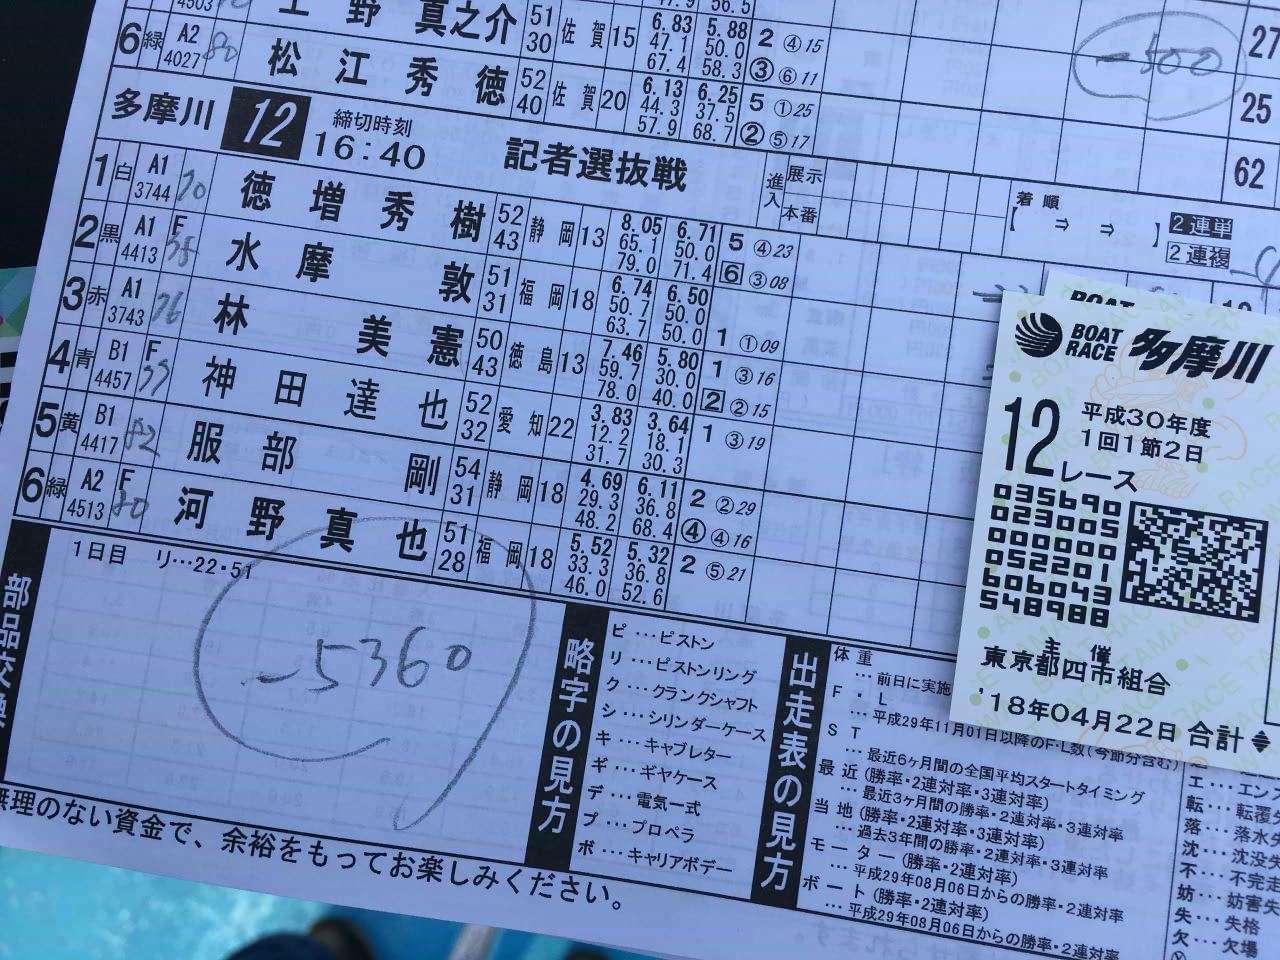 4503
上野真之介 51 30 佐賀 15 6.83 47.1 67.4 5.88 50.0 58.3 2 ④15 ③ ⑥11
-500
27
6 緑 A2 4027 80 松江秀徳 52 40 佐賀 20 6.13 44.3 57.9 6.25 37.5 68.7 5 ①25 ② ⑤17
25
62
多摩川 12 締切時刻 16:40 記者選抜戦 進入 展示 本番 着順 【 ⇒ ⇒ 】 2連単 2連複
1 白 A1 3744 70 徳増秀樹 52 43 静岡 13 8.05 65.1 79.0 6.71 50.0 71.4 5 ④23 6 ③08
2 黒 A1 4413 F 水摩敦 51 31 福岡 18 6.74 50.7 63.7 6.50 50.0 50.0 1 ①09
3 赤 A1 3743 76 林美憲 50 43 徳島 13 7.46 59.7 78.0 5.80 30.0 40.0 1 ③16 2 ②15
4 青 B1 4457 F 神田達也 52 32 愛知 22 3.83 12.2 31.7 3.64 18.1 30.3 1 ③19
5 黄 B1 4417 82 服部剛 54 31 静岡 18 4.69 29.3 48.2 6.11 36.8 68.4 2 ②29 ④ ④16
6 緑 A2 4513 F 80 河野真也 51 28 福岡 18 5.52 33.3 46.0 5.32 36.8 52.6 2 ⑤21
1日目 リ…22・51
-5360
略字の見方
ピ…ピストン
リ…ピストンリング
ク…クランクシャフト
シ…シリンダーケース
キ…キャブレター
ギ…ギヤケース
デ…電気一式
プ…プロペラ
ボ…キャリアボデー
出走表の見方
体重
…前日に実施
F・L
…平成29年11月01日以降のF・L数(今節分含む)
ST
…最近6ヶ月間の全国平均スタートタイミング
最近(勝率・2連対率・3連対率)
…最近3ヶ月間の勝率・2連対率・3連対率
当地(勝率・2連対率・3連対率)
…過去3年間の勝率・2連対率・3連対率
モーター(勝率・2連対率)
…平成29年08月06日からの勝率・2連対率
ボート(勝率・2連対率)
…平成29年08月06日からの勝率・2連対率
エ…エンス
転…転覆
落…落水
沈…沈没
不…不完走
妨…妨害失
失…失格
欠…欠場
無理のない資金で、余裕をもってお楽しみください。
BOAT
BOAT RACE 多摩川
12レース
平成30年度
1回1節2日
035690
023005
000000
052201
606043
548988
主催
東京都四市組合
'18年04月22日 合計